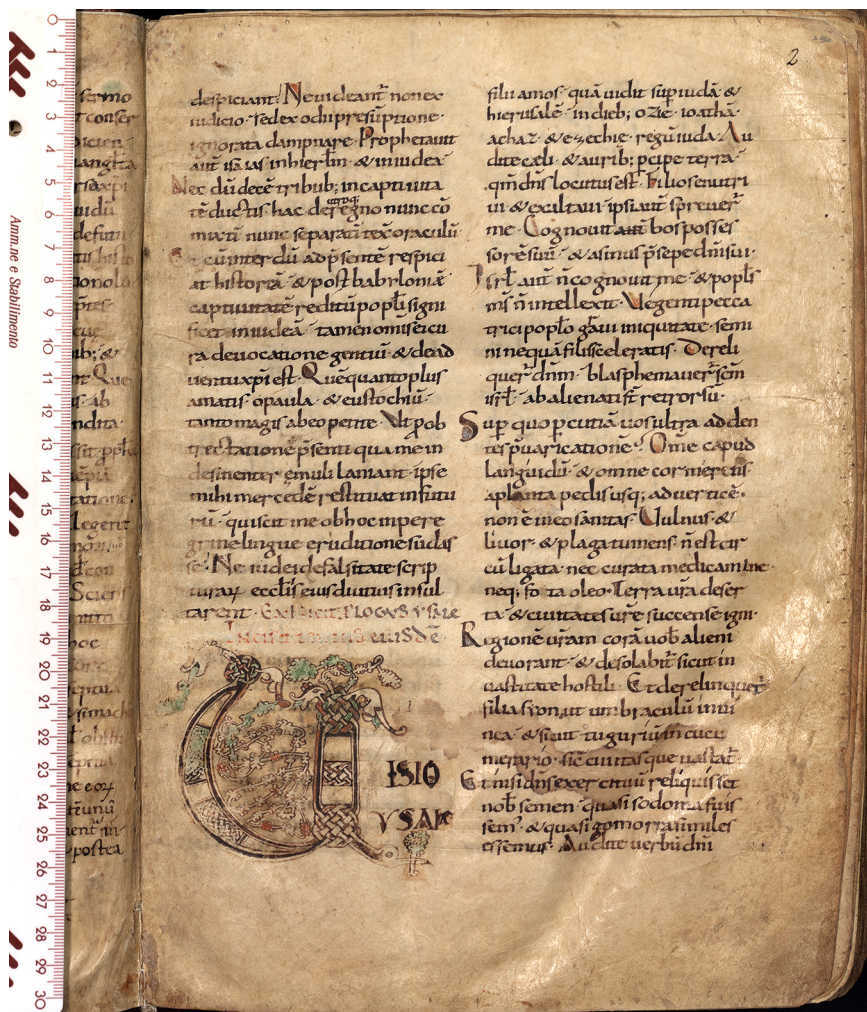 2
despiciant. Ne videant̄ non ex
iudicio. sed ex odii presūptione.
ignorata dampnare. Prophetavit
aut̄ isaias in hierl̄m. & in iudea.
Nec dū decē tribub; in captivita
tē ductis. hac de utroq; regno nunc cō
mixtū nunc separatū texit oraculū
Et cū interdū ad p̄sentē respici
at historiā. & post babiloniā
captivitatē reditū popl̄i signi
ficet in iudeā. tamen omis ei cu
ra de vocatione gentiū. & de ad
ventu xp̄i est. Quē quanto plus
amatis o paula. & eustochiū.
tanto magis ab eo petite. Ut p̄ ob
trectatione p̄senti qua me in
desinenter emuli laniant. ipse
mihi mercedē restituat in futu
rū. qui scit me ob hoc in pere
grine lingue eruditione sudas
se. Ne iudei de falsitate scrip
turarꝝ eccl̄is eius diutius insul
tarent. EXPLICIT PLOGUS YSAIE
Incipit eiusdē
VISIO
YSAIE
filii amos. quā vidit sup iudā &
hierusalē. in dieb; ozie. ioathā.
achaz. & ezechie. regū iuda. Au
dite cęli. & aurib; pcipe terra.
qm̄ dn̄s locutus est. Filios enutri
vi & exaltavi. ipsi aut̄ spreuer̄
me. Cognovit bos posses
sorē suū. & asinus p̄sepe dn̄i sui.
Isrl̄ aut̄ n̄ cognovit me. & popl̄s
ms̄ n̄ intellexit. Ve genti pecca
trici popl̄o gravi iniquitate. semi
ni nequā filiis sceleratis. Dereli
quer̄ dn̄m. blasphemaver̄ scm̄
isrl̄. abalienati st̄ retrorsū.
Sup quo pcutiā vos ultra. adden
tes p̄varicationē? Omē capud
languidū. & omne cor merens
a planta pedis usq; ad verticē.
non ē in eo sanitas. Vulnus. &
livor. & plaga tumens. n̄ est cir
cūligata. nec curata medicamine.
neq; fota oleo. Terra vr̄a deser
ta. & civitates vr̄e succense igni.
Regionē vr̄am corā vob̄ alieni
devorant. & desolabit̄ sicut in
vastitate hostili. Et derelinquet̄
filia syon. ut umbraculū in vi
nea. & sicut tuguriū in cucu
merario. sic̄ civitas que vastat̄.
Et nisi dn̄s exercituū reliquisset
nob̄ semen. quasi sodoma fuis
sem̄. & quasi gomorra similes
essemus. Audite verbū dn̄i
Amm.ne e Stabilimento
0
1
2
3
4
5
6
7
8
9
10
11
12
13
14
15
16
17
18
19
20
21
22
23
24
25
26
27
28
29
30